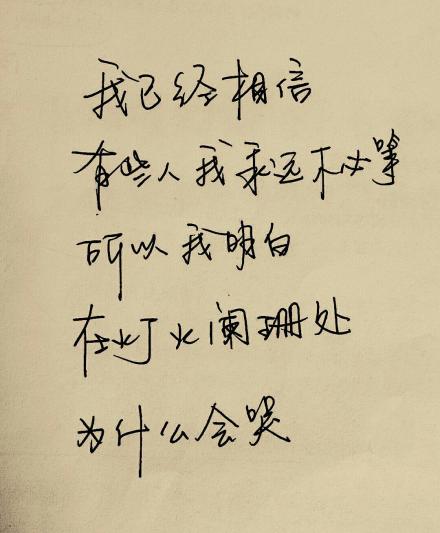 我已经相信
有些人我永远不必等
所以我明白
在灯火阑珊处
为什么会哭